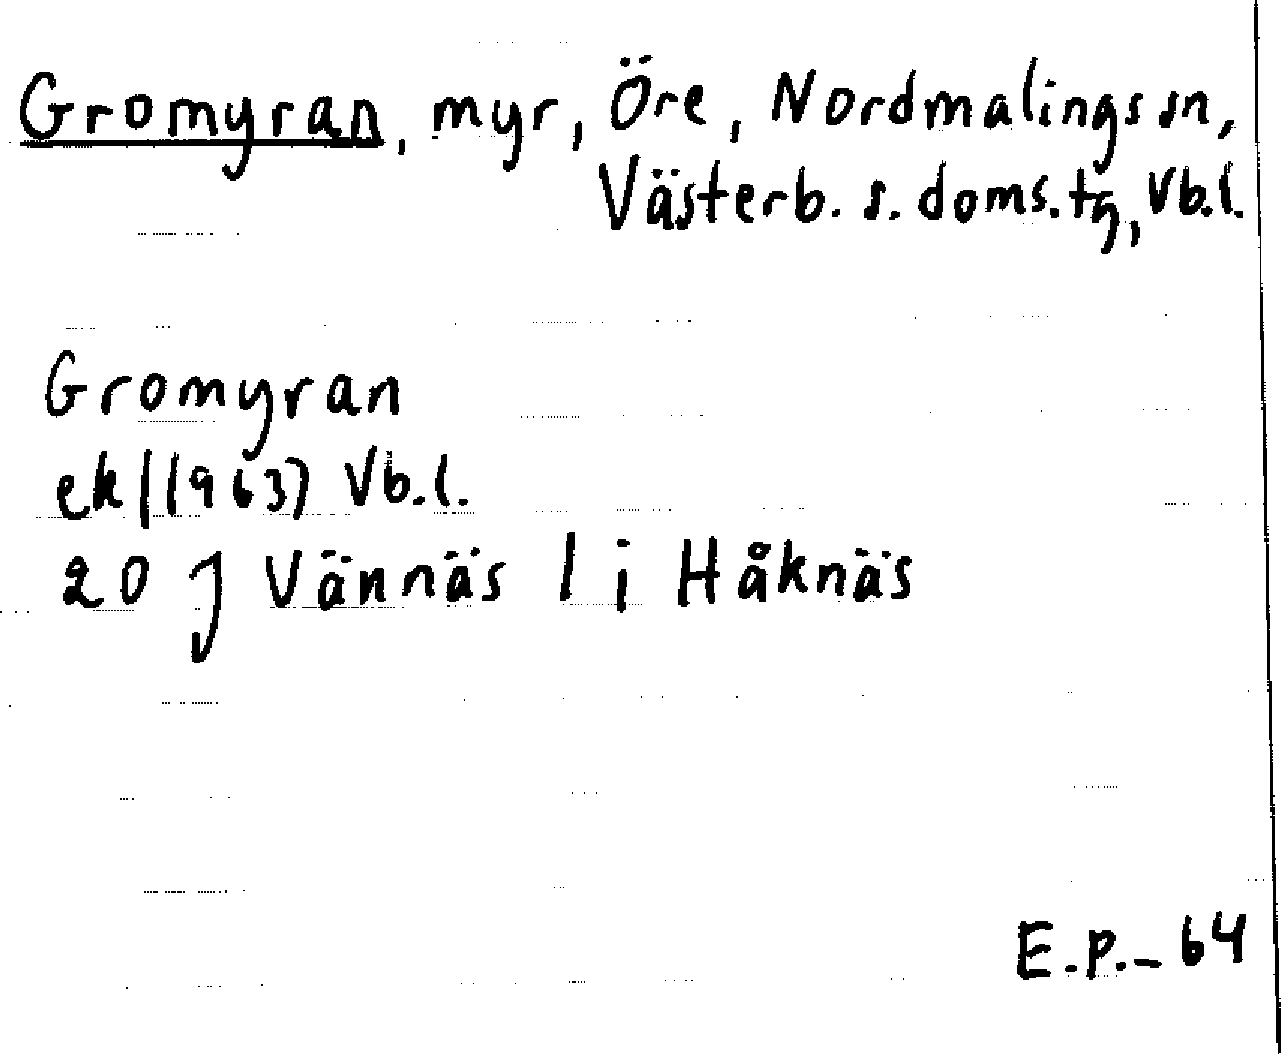 Gromyran, myr, Öre, Nordmalings sn,
Västerb. s. doms.tg, Vb.l.
Gromyran
ek (1963) Vb.l.
20 J Vännäs l i Håknäs
E.P.-64